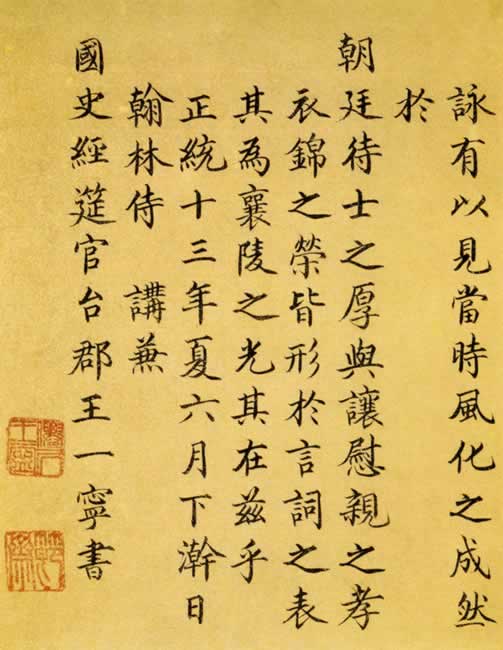 詠有以見當時風化之成然
於
朝廷待士之厚與讓慰親之孝
衣錦之榮皆形於言詞之表
其為襄陵之光其在茲乎
正統十三年夏六月下澣日
翰林侍講兼
國史經筵官台郡王一寧書